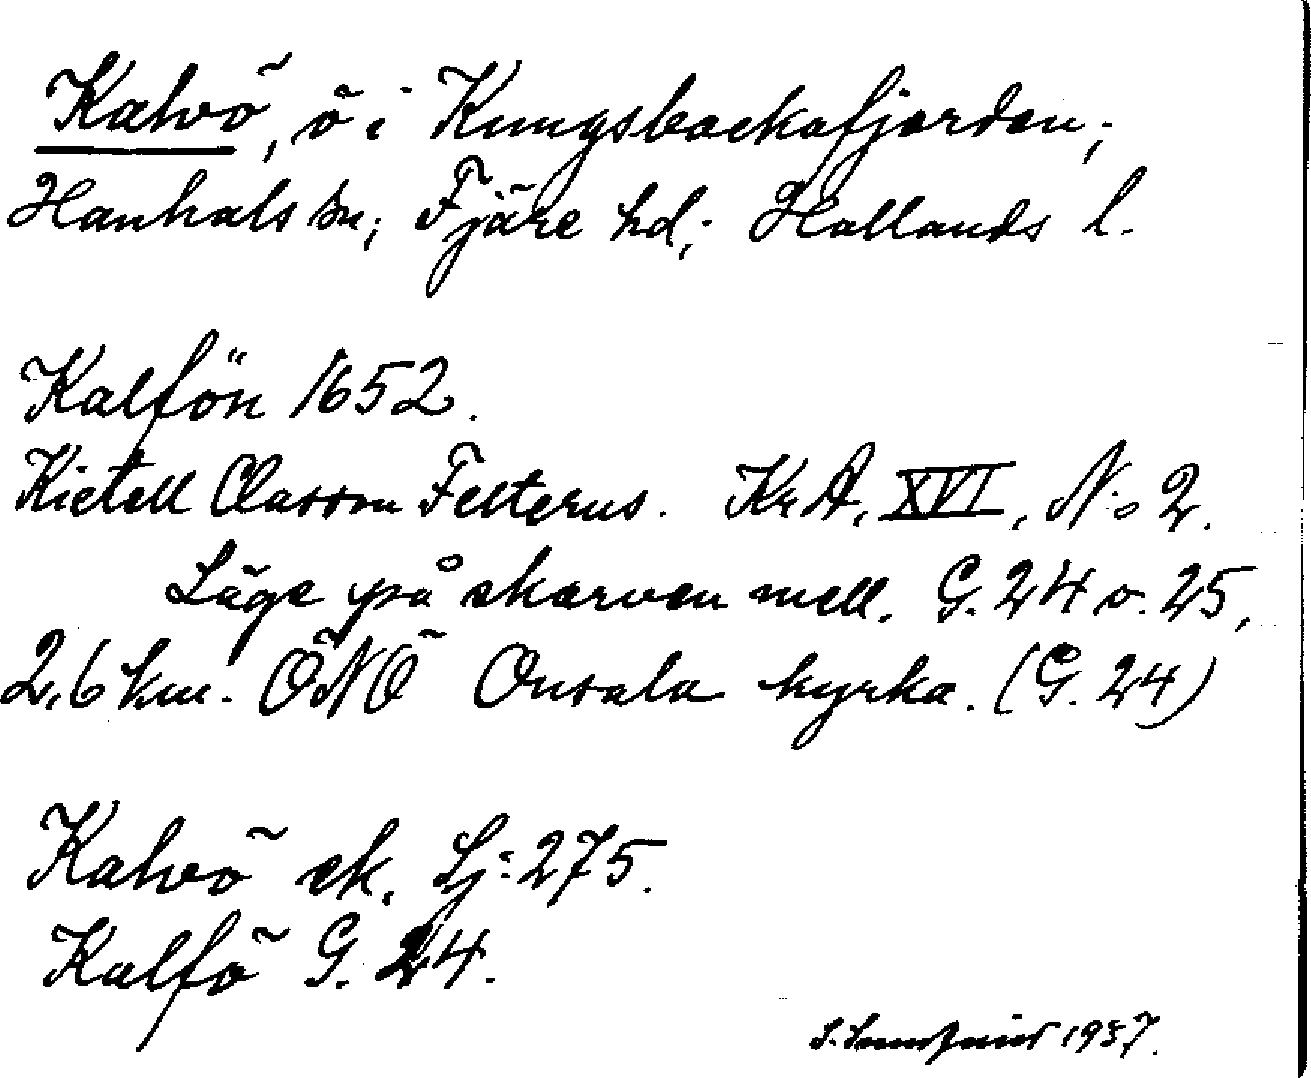 Kalvö, ö i Kungsbackafjorden,
Hanhals sn; Fjäre hd; Hallands l.
Kalfön 1652.
Kietell Classon Felterus. Kr.A. XVI, N:o 2.
Läge på skarven mell. G. 24 o. 25,
2,6 km. ÖNÖ Onsala kyrka. (G. 24)
Kalvö ek. Sj: 275.
Kalfö G. 24.
S. 1937.